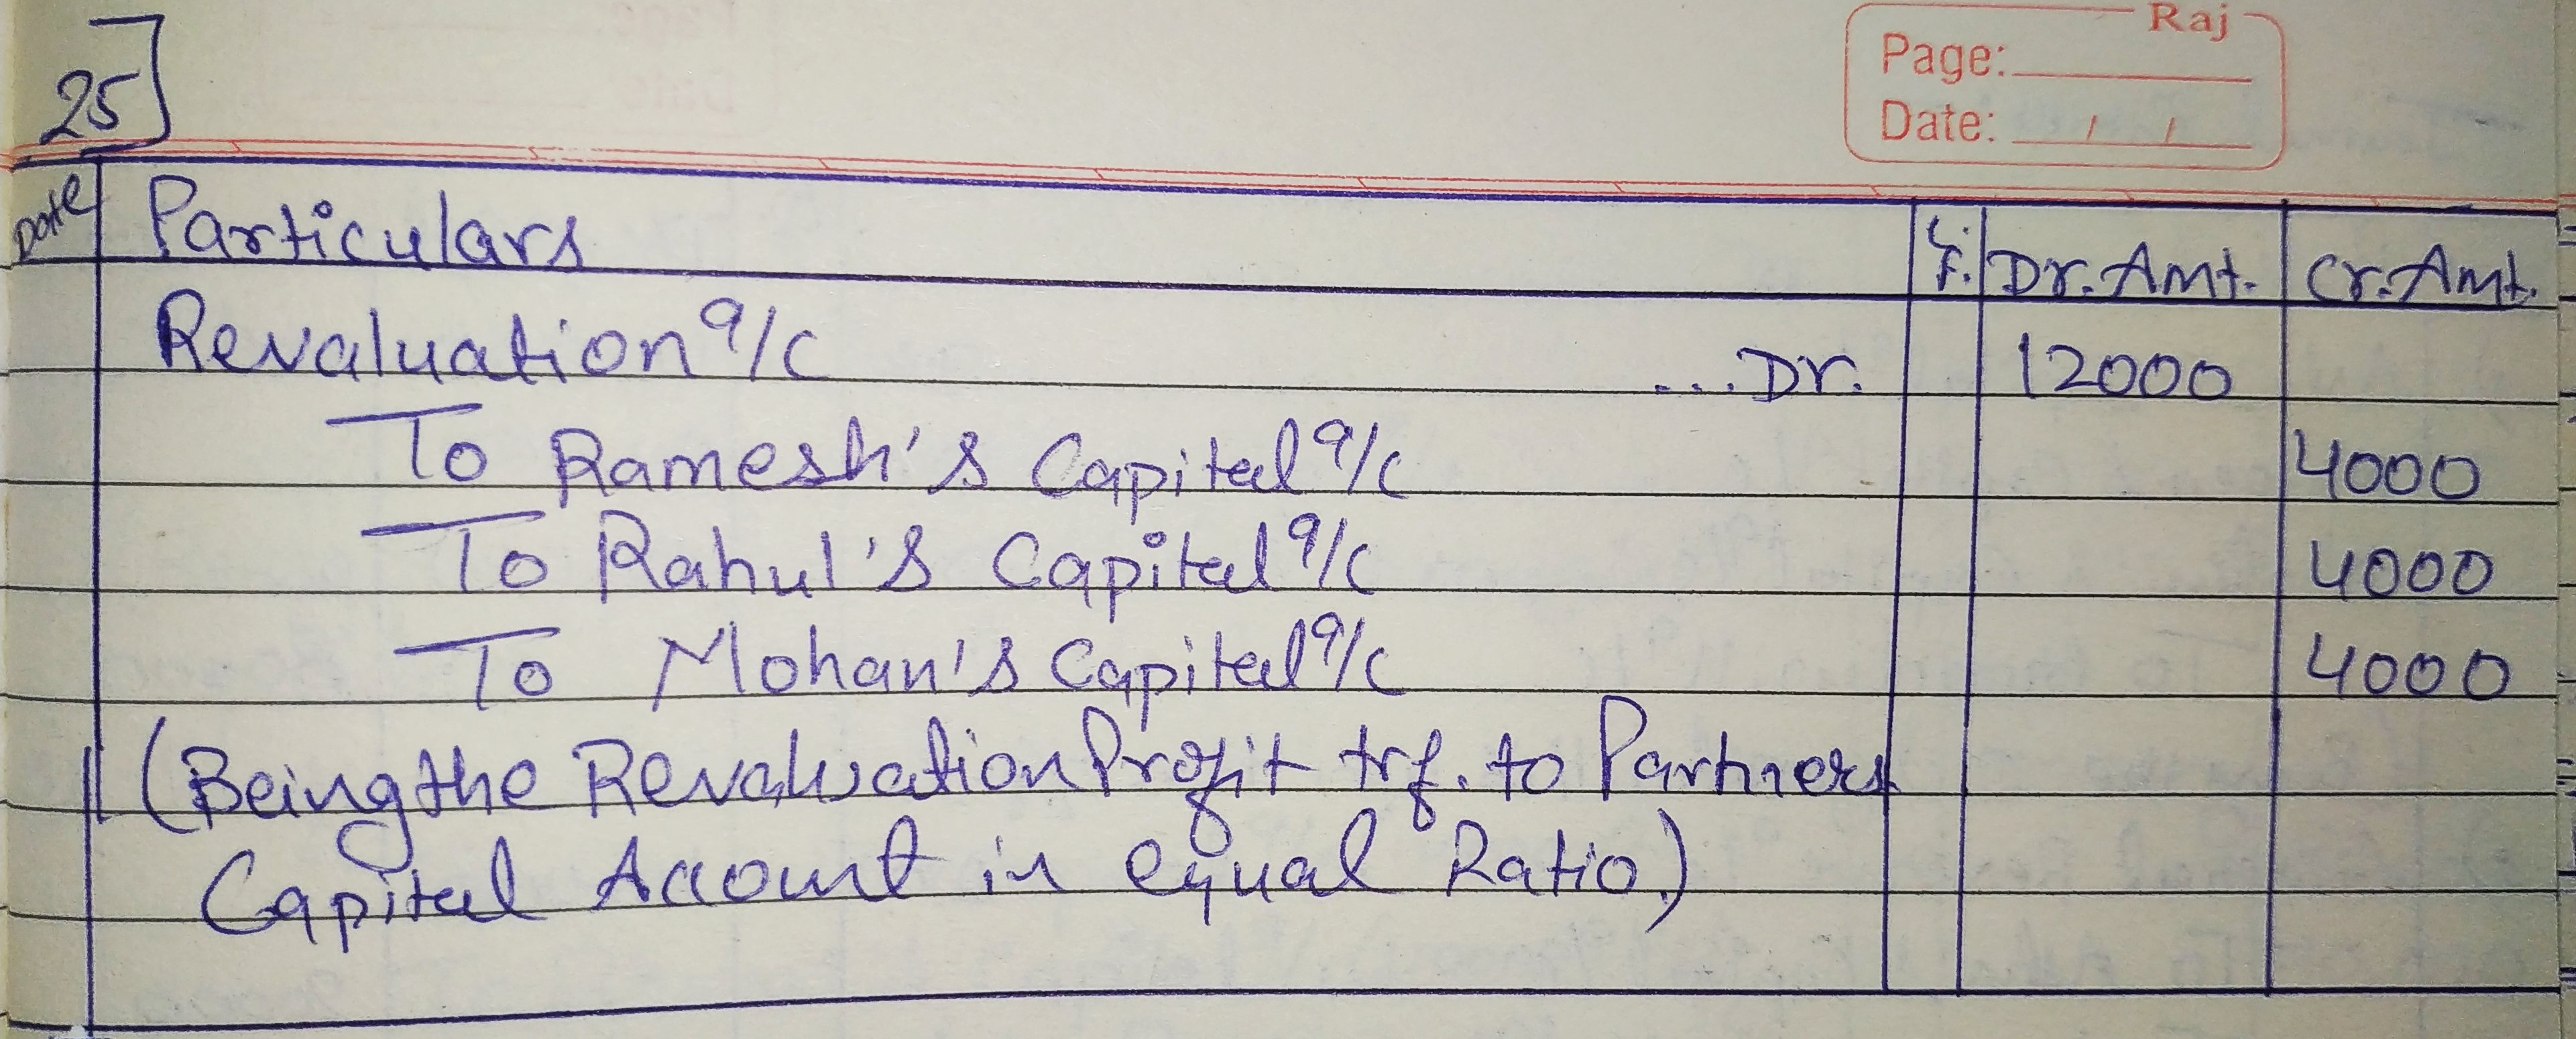 Raj
Page:
Date: / /
25]
Date Particulars L.F. Dr. Amt. Cr. Amt.
Revaluation a/c ...Dr. 12000
To Ramesh's Capital a/c 4000
To Rahul's Capital a/c 4000
To Mohan's Capital a/c 4000
(Being the Revaluation Profit trf. to Partners
Capital Account in equal Ratio.)